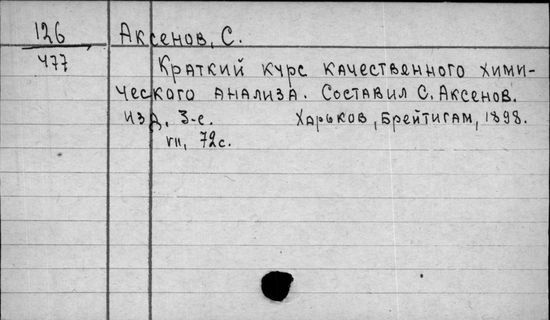 126
477
Аксенов, С.
Краткий курс качественного хими-
ческого анализа. Составил С. Аксенов.
Изд. 3-е. Харьков, Брейтигам, 1898.
VII, 72с.